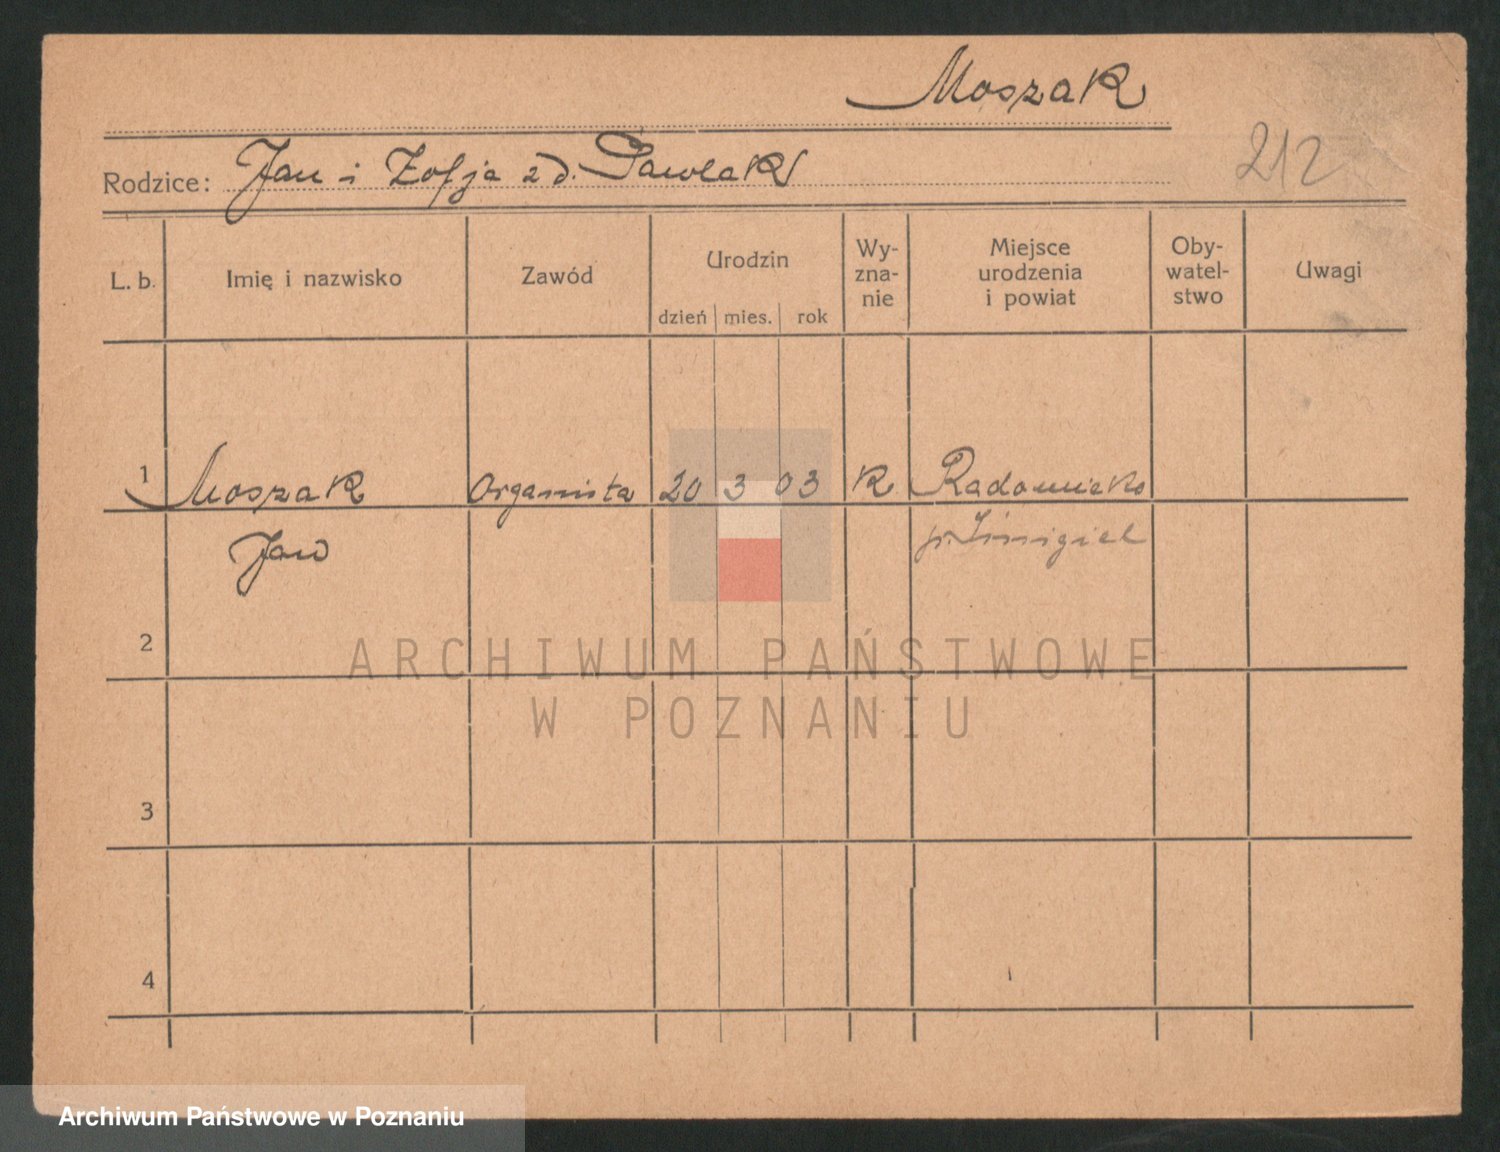 Moszak
212
Rodzice: Jan i Zofja zd. Pawlak
L. b. Imię i nazwisko Zawód Urodzin Wy- zna- nie Miejsce urodzenia i powiat Oby- watel- stwo Uwagi
dzień mies. rok
1 Moszak Organista 20 3 03 R Radomicko
Jan p. Śmigiel
2
3
4
ARCHIWUM PAŃSTWOWE
W POZNANIU
Archiwum Państwowe w Poznaniu